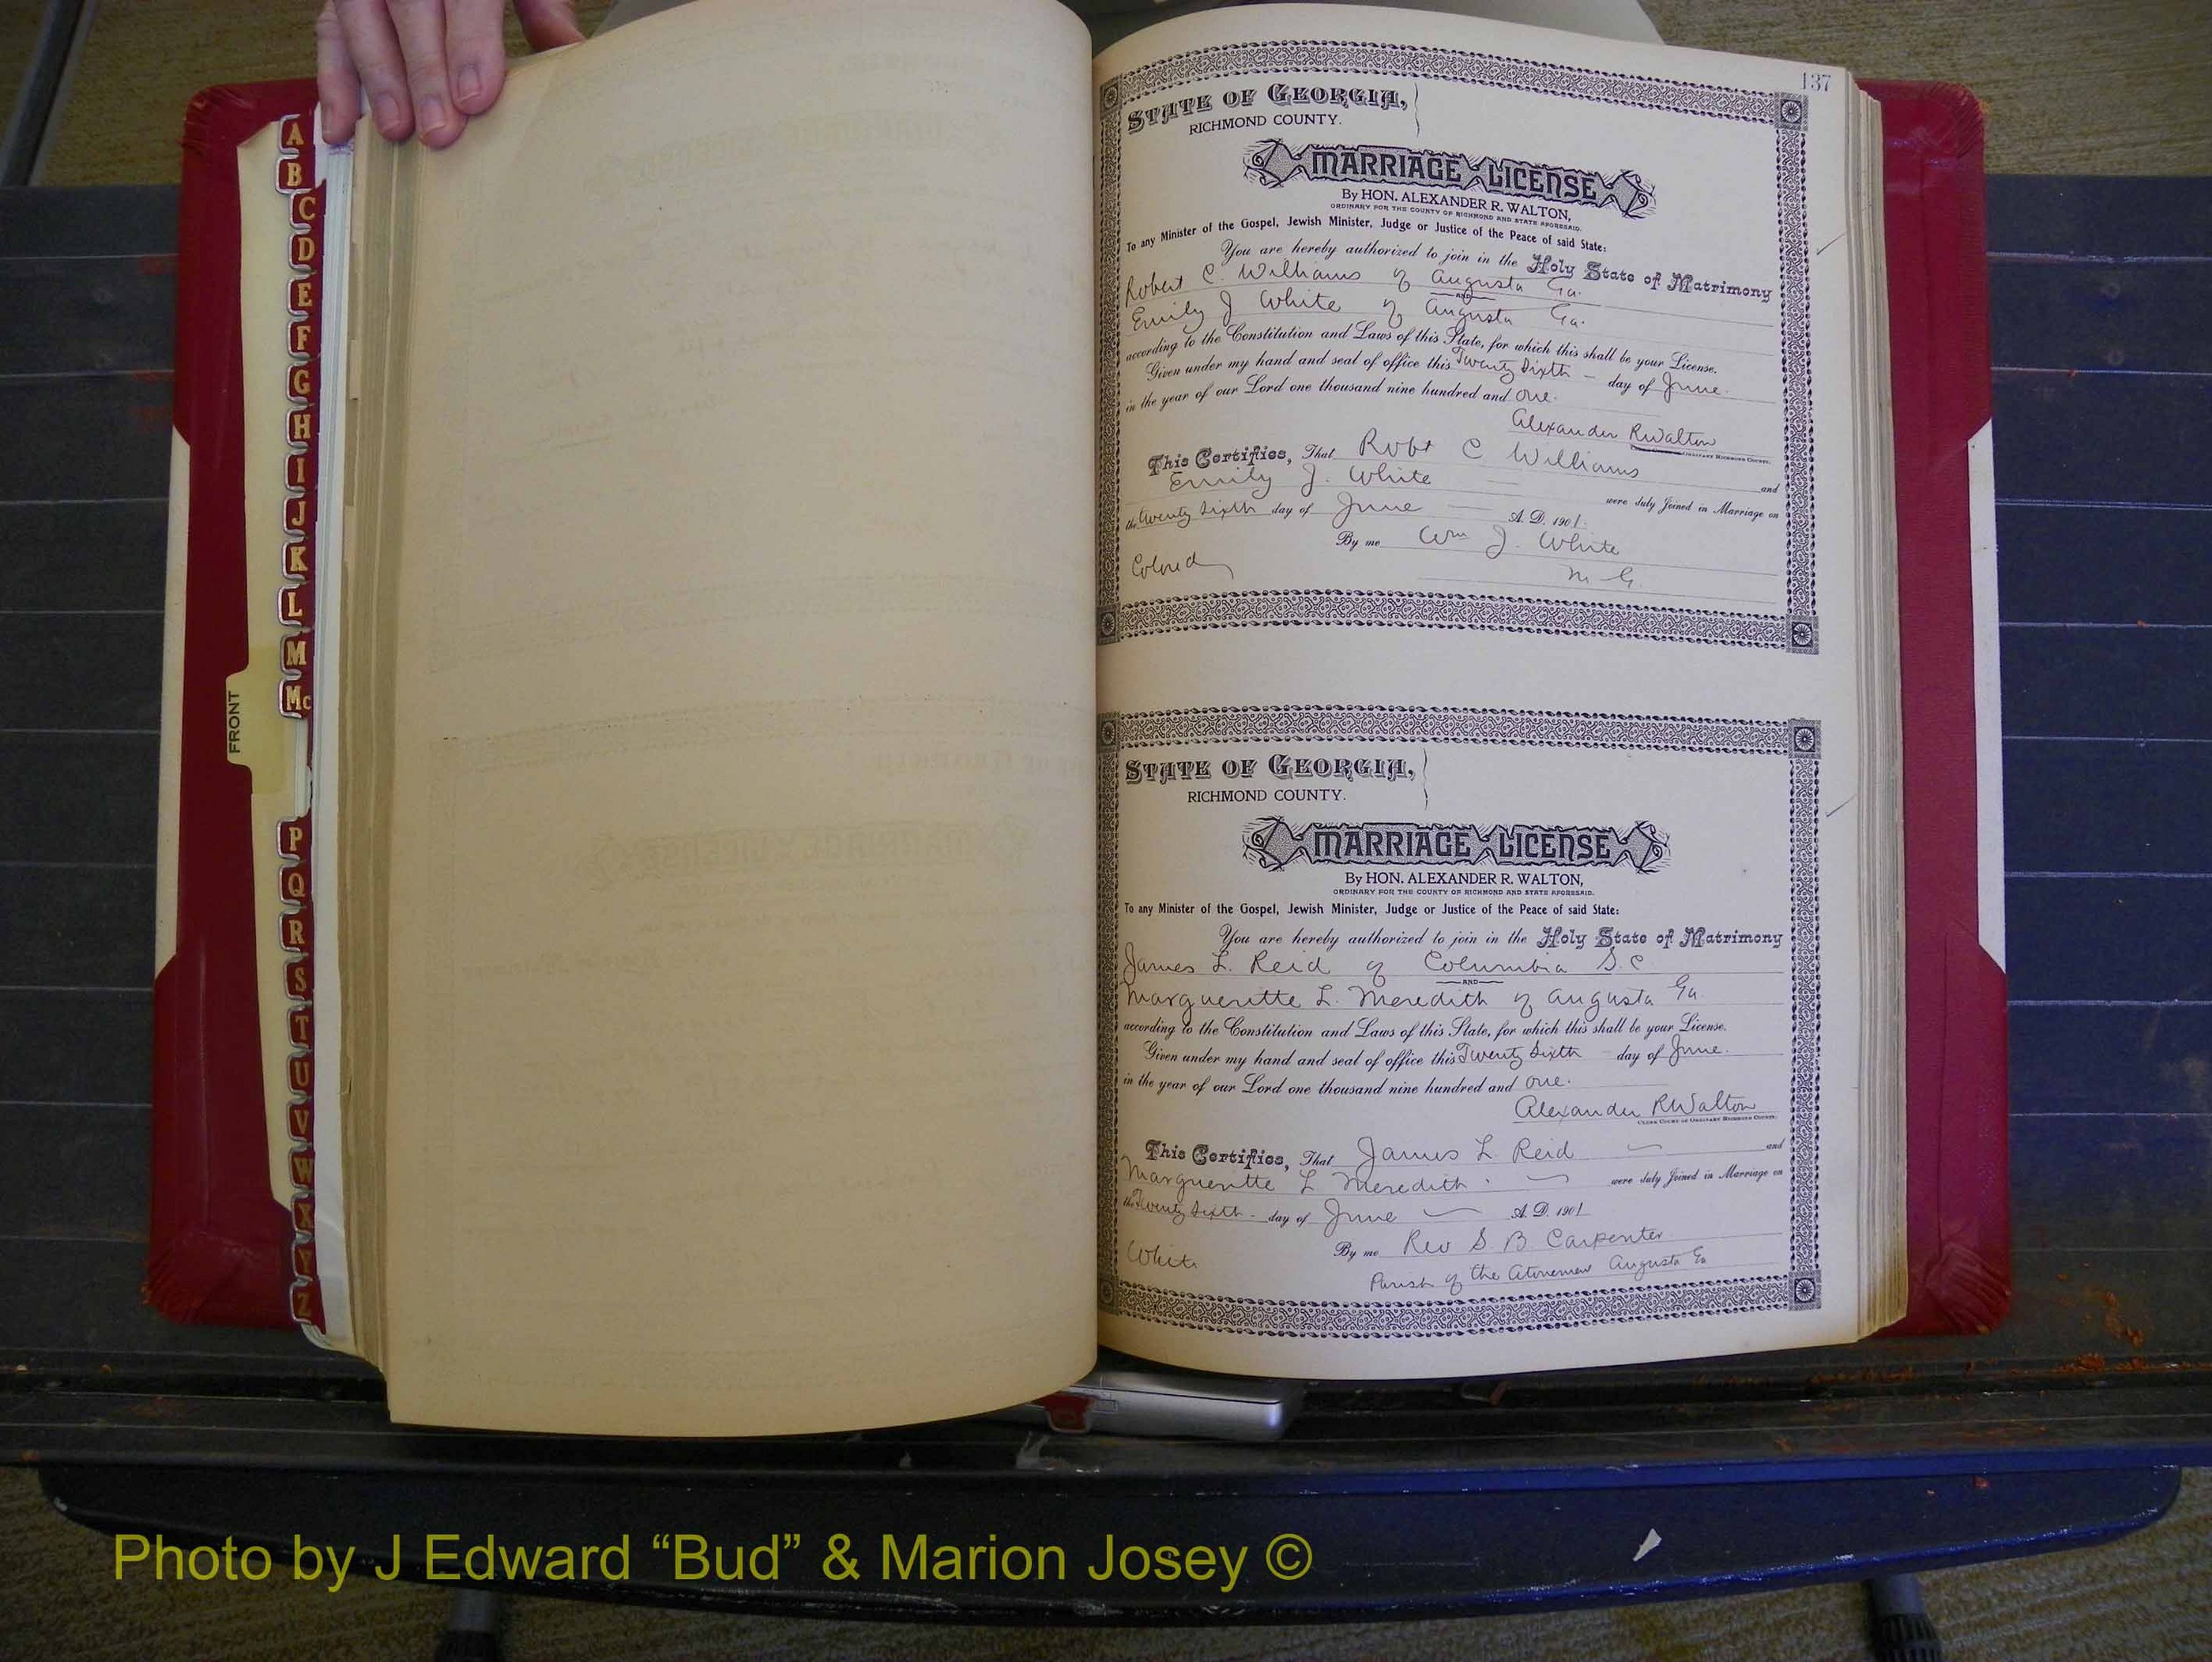 A
B
C
D
E
F
G
H
I
J
K
L
M
Mc
FRONT
P
Q
R
S
T
U
V
W
X
Y
Z
137
STATE OF GEORGIA,
RICHMOND COUNTY.
MARRIAGE LICENSE
By HON. ALEXANDER R. WALTON,
ORDINARY FOR THE COUNTY OF RICHMOND AND STATE AFORESAID.
To any Minister of the Gospel, Jewish Minister, Judge or Justice of the Peace of said State:
You are hereby authorized to join in the Holy State of Matrimony
Robert C. Williams of Augusta Ga.
AND
Emily J White of Augusta Ga.
according to the Constitution and Laws of this State, for which this shall be your License.
Given under my hand and seal of office this Twenty Sixth — day of June.
in the year of our Lord one thousand nine hundred and one.
Alexander R Walton
ORDINARY RICHMOND COUNTY.
This Certifies, That Robt C Williams
and
Emily J. White — were duly Joined in Marriage on
the twenty sixth day of June — A. D. 1901.
By me Wm J. White
Colored
M G.
STATE OF GEORGIA,
RICHMOND COUNTY.
MARRIAGE LICENSE
By HON. ALEXANDER R. WALTON,
ORDINARY FOR THE COUNTY OF RICHMOND AND STATE AFORESAID.
To any Minister of the Gospel, Jewish Minister, Judge or Justice of the Peace of said State:
You are hereby authorized to join in the Holy State of Matrimony
James L. Reid of Columbia S. C
AND
Margueritte L. Meredith of Augusta Ga.
according to the Constitution and Laws of this State, for which this shall be your License.
Given under my hand and seal of office this Twenty Sixth — day of June.
in the year of our Lord one thousand nine hundred and one.
Alexander R Walton
CLERK COURT OF ORDINARY RICHMOND COUNTY.
This Certifies, That James L. Reid — and
Margueritte L. Meredith. — were duly Joined in Marriage on
the Twenty Sixth - day of June — A. D. 1901
By me Rev S. B. Carpenter
White
Parish of the Atonement Augusta Ga
Photo by J Edward “Bud” & Marion Josey ©